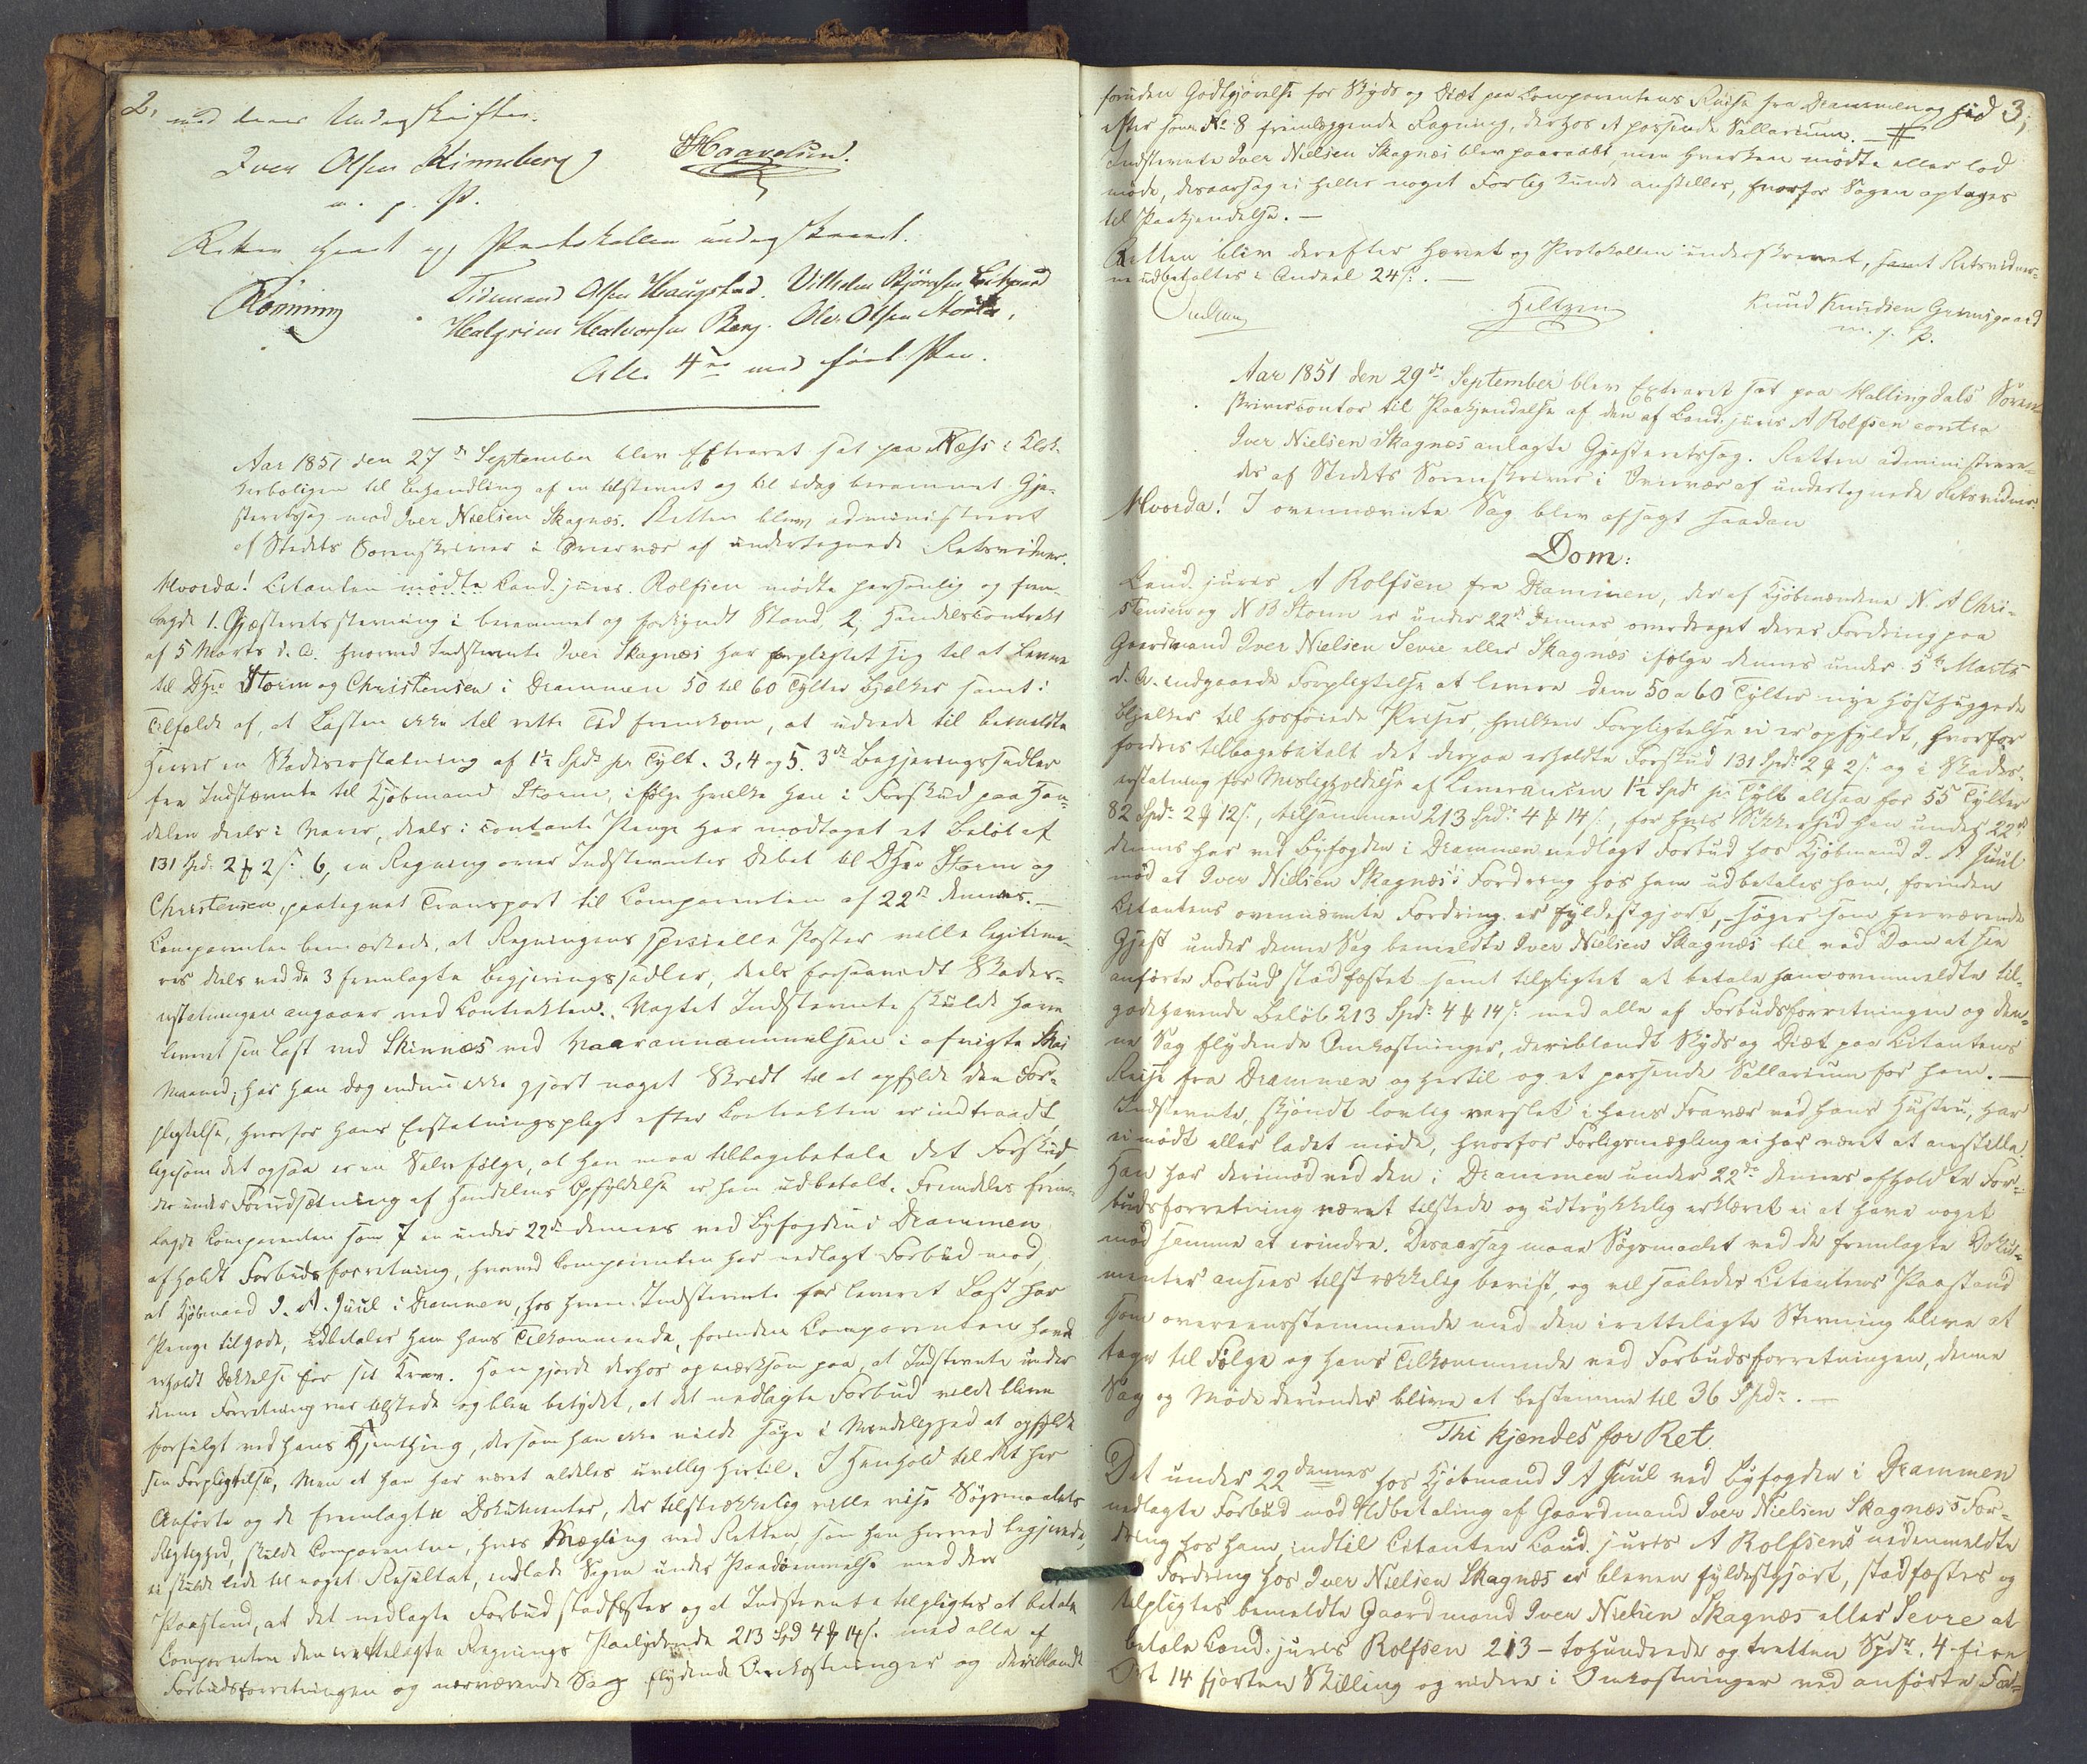 2.
med deres Underskrifter.
Iver Olsen Kinneberg
Haavelsen.
m. p. P.
Retten hævet og Protokollen underskrevet.
Rønning
Tidemand Olsen Haugstad. Vilhelm Bjørnsen
Halgrim Halvorsen Berg. Ole Olsen
Alle 4re med ført Pen.
Aar 1851 den 27de September blev Extraret sat paa Næss i Klok-
kerboligen til Behandling af en tilstevnt og til idag berammet Gjæ-
steretssag mod Iver Nielsen Skagnæs. Retten blev administreret
af Stedets Sorenskriver i Overvær af undertegnede Retsvidner.
Hvorda! Citanten mødte Cand. juris. Rolfsen mødte personlig og frem-
lagde 1. Gjæsteretsstevning i berammet og forkyndt Stand, 2, Handelscontrakt
af 5 Marts d. A. hvorved Indstevnte Iver Skagnæs har forpligtet sig til at levere
til DHrr Storm og Christensen i Drammen 50 til 60 Tylter Bjelker samt i
Tilfælde af, at Lasten ikke til rette Tid fremkom, at udrede til bemeldte
Herrer en Skadeserstatning af 1½ Spd pr Tylt. 3, 4 og 5. 3de Begjeringssedler
fra Indstævnte til Kjøbmand Storm, ifølge hvilke han i Forskud paa Han-
delen deels i Varer, deels i contante Penge har modtaget et Beløb af
131 Spd. 2 # 2 s. 6, en Regning over Indstevntes Debet til DHrr Storm og
Christensen, paategnet Transport til Comparenten af 22de dennes.—
Comparenten bemærkede, at Regningens specielle Poster ville legitime-
res deels ved de 3 fremlagte Begjeringssedler, deels forsaavidt Skades-
erstatningen angaaer ved Contrakten. Uagtet Indstevnte skulde have
leveret sin Last ved Skinnes ved Vaarannammelsen i afvigte Mai
Maaned, har han dog endnu ikke gjort noget Skridt til at opfylde den For-
pligtelse, hvorfor hans Erstatningspligt efter Contrakten er indtraadt,
ligesom det ogsaa er en Selvfølge, at han maa tilbagebetale det Forskud,
der under Forudsætning af Handelens Opfyldelse er ham udbetalt. Fremdeles frem-
lagde Comparenten som 7 en under 22de dennes ved Byfogden i Drammen
afholdt Forbudsforretning, hvorved Comparenten har nedlagt Forbud mod,
at Kjøbmand J. A. Juul i Drammen, hos hvem Indstevnte for leveret Last har
Penge tilgode, udbetaler ham hans Tilkommende, forinden Comparenten havde
erholdt Dækkelse for sit Krav. Han gjorde derhos opmærksom paa, at Indstevnte under
denne Forretning var tilstede og blev betydet, at det nedlagte Forbud vilde blive
forfulgt ved hans Hjemthing, dersom han ikke vilde søge i Mindelighed at opfylde
sin Forpligtelse, men at han har været aldeles uvillig hertil. I Henhold til det her
Anførte og de fremlagte Dokumenter, der tilstrækkelig ville vise Søgsmaalets
Rigtighed, skulde Comparenten, hvis Mægling ved Retten, som han herved begjerede,
ei skulde lede til noget Resultat, indlade Sagen under Paadømmelse med den
Paastand, at det nedlagte Forbud stadfæstes og at Indstevnte tilpligtes at betale
Comparenten den irettelagte Regnings Paalydende 213 Spd 4 # 14 s. med alle af
Forbudsforretningen og nærværende Sag flydende Omkostninger og deriblandt
3,
foruden Godtgjørelse for Skyds og Diæt paa Comparentens Reise fra Drammen og hid
efter som No 8 fremlæggende Regning, derhos et passende Sallarium.—#
Indstevnte Iver Nielsen Skagnæs blev paaraabt, men hverken mødte eller lod
møde, desaarsag ei heller noget Forlig kunde anstilles, hvorfor Sagen optages
til Paakjendelse.—
Retten blev derefter hævet og Protokollen underskrevet, samt Retsvidner-
ne udbetaltes i Andeel 24 s.—
Heltzen
Knud Knudsen Grimsgaard
m. p. P.
Aar 1851 den 29de September blev Extraret sat paa Hallingdals Soren-
skrivercontor til Paakjendelse af den af Cand. juris A Rolfsen contra
Iver Nielsen Skagnæs anlagte Gjæsteretssag. Retten administrere-
des af Stedets Sorenskriver i Overvær af undertegnede Retsvidner.
Hvorda! I ovennævnte Sag blev afsagt saadan
Dom:
Cand. juris A Rolfsen fra Drammen, der af Kjøbmændene N. A Chri-
stensen og N B Storm er under 22de dennes overdraget deres Fordring paa
Gaardmand Iver Nielsen Sevre eller Skagnæs ifølge dennes under 5te Marts
d. A. indgaaede Forpligtelse at levere dem 50 a 60 Tylter nye høsthuggede
Bjelker til hosføiede Priser, hvilken Forpligtelse ei er opfyldt, hvorfor
fordres tilbagebetalt det derpaa erholdte Forskud 131 Spd. 2 # 2 s. og i Skades-
erstatning for Misligholdelse af Leverancen 1½ Spd pr Tylt altsaa for 55 Tylter
82 Spd. 2 # 12 s., tilsammen 213 Spd. 4 # 14 s., for hvis Sikkerhed han under 22de
dennes har ved Byfogden i Drammen nedlagt Forbud hos Kjøbmand J. A Juul
mod at Iver Nielsen Skagnæs's Fordring hos ham udbetales ham, forinden
Citantens ovennævnte Fordring er fyldestgjort,— søger som herværende
Gjest under denne Sag bemeldte Iver Nielsen Skagnæs til ved Dom at see
anførte Forbud stadfæstet samt tilpligtet at betale ham ovenmeldte til-
godehavende Beløb 213 Spd. 4 # 14 s. med alle af Forbudsforretningen og den-
ne Sag flydende Omkostninger, deriblandt Skyds og Diæt paa Citantens
Reise fra Drammen og hertil og et passende Sallarium for ham.—
Indstevnte, skjøndt lovlig varslet i hans Fravær ved hans Hustru, har
ei mødt eller ladet møde, hvorfor Forligsmægling ei har været at anstille.
Han har derimod ved den i Drammen under 22de dennes afholdte For-
budsforretning været tilstede og udtrykkelig erklæret ei at have noget
mod samme at erindre. Desaarsag maae Søgsmaalet ved de fremlagte Doku-
menter ansees tilstrækkelig bevist, og vil saaledes Citantens Paastand
som overeensstemmende med den irettelagte Stevning blive at
tage til Følge og hans Tilkommende ved Forbudsforretningen, denne
Sag og Møde derunder blive at bestemme til 36 Spd.—
Thi kjendes for Ret
Det under 22 dennes hos Kjøbmand J A Juul ved Byfogden i Drammen
nedlagte Forbud mod Udbetaling af Gaardmand Iver Nielsen Skagnæs's For-
dring hos ham, indtil Citanten Cand. juris A Rolfsens nedenmeldte
Fordring hos Iver Nielsen Skagnæs er bleven fyldestgjort, stadfæstes og
tilpligtes bemeldte Gaardmand Iver Nielsen Skagnæs eller Sevre at
betale Cand. juris Rolfsen 213 – tohundrede og tretten Spdr. 4 fire
Ort 14 fjorten Skilling og videre i Omkostninger ved anførte For-